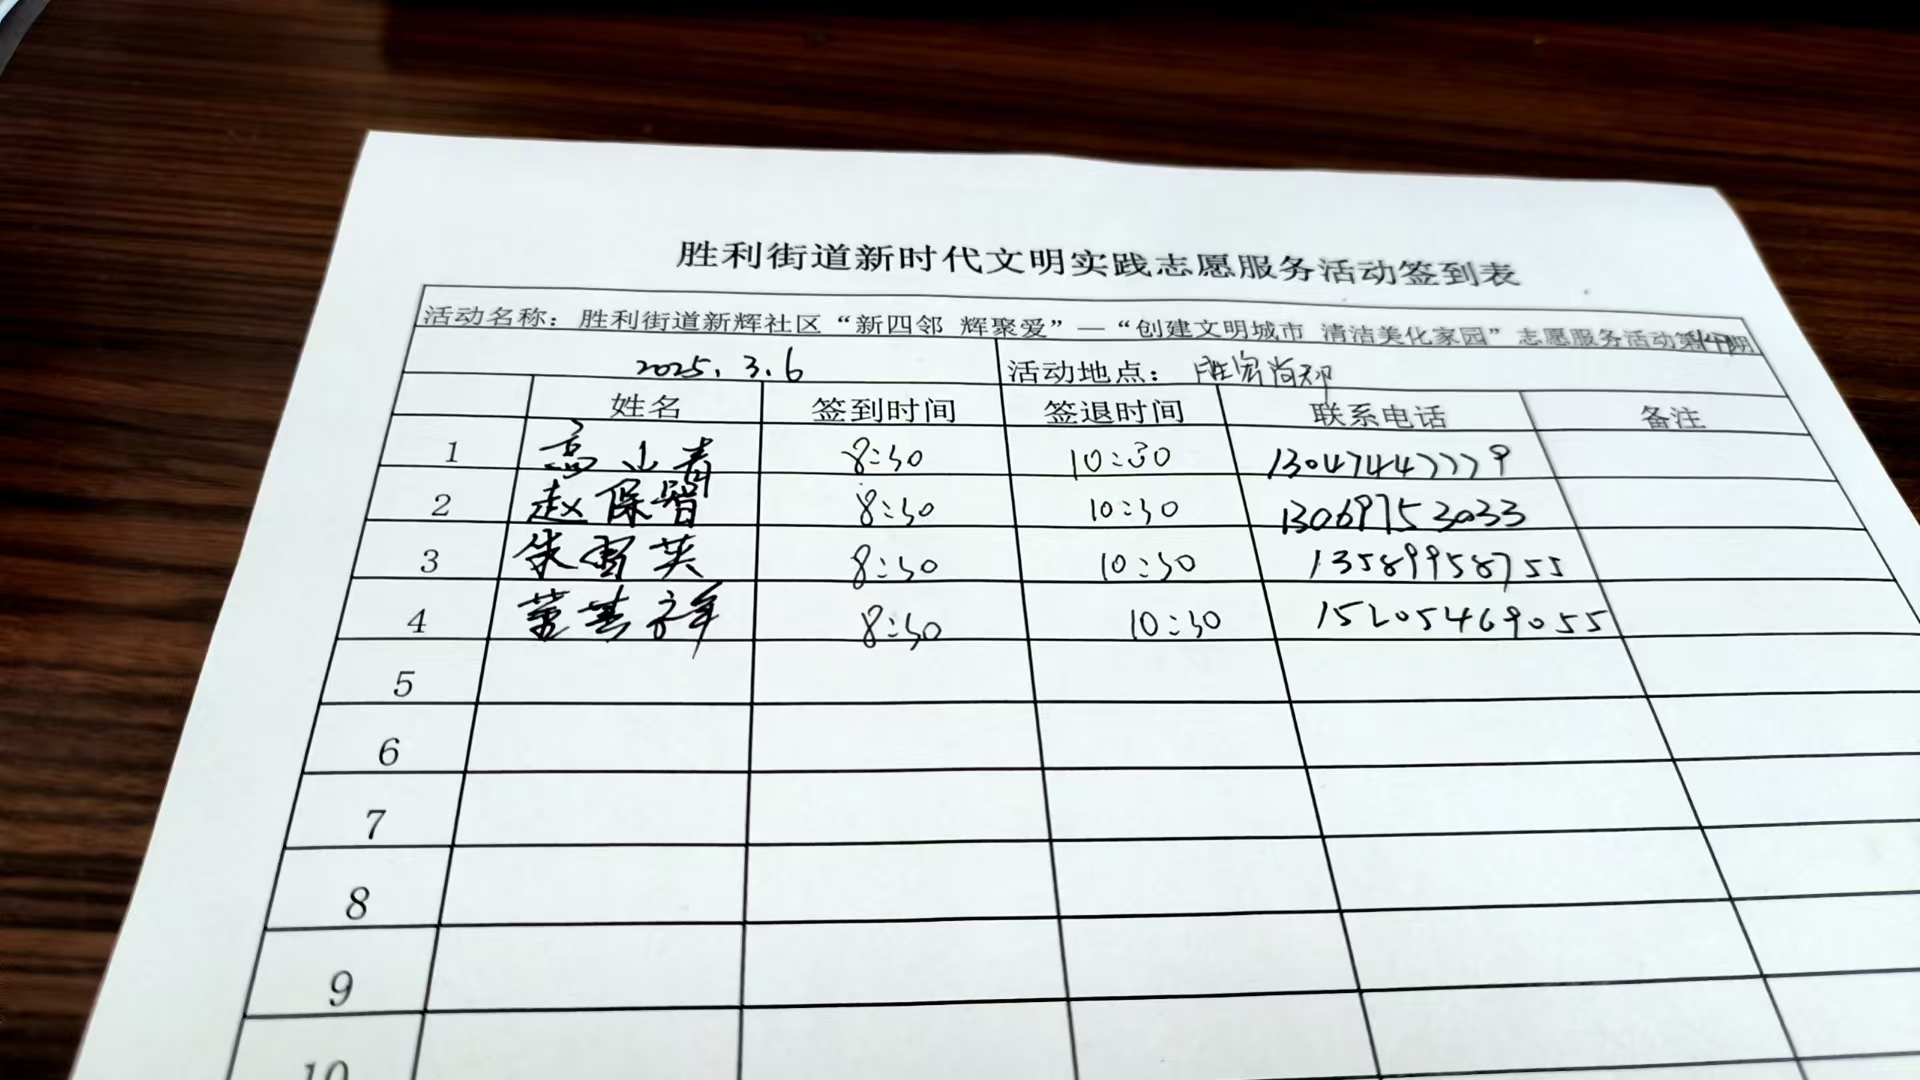 胜利街道新时代文明实践志愿服务活动签到表
活动名称：胜利街道新辉社区“新四邻 辉聚爱”—“创建文明城市 清洁美化家园”志愿服务活动
2025.3.6 活动地点：胜宏尚邦
姓名 签到时间 签退时间 联系电话 备注
1 高小青 8:30 10:30 13047447779
2 赵保智 8:30 10:30 13069753033
3 朱雪英 8:30 10:30 13589958755
4 董其祥 8:30 10:30 15205469055
5
6
7
8
9
10